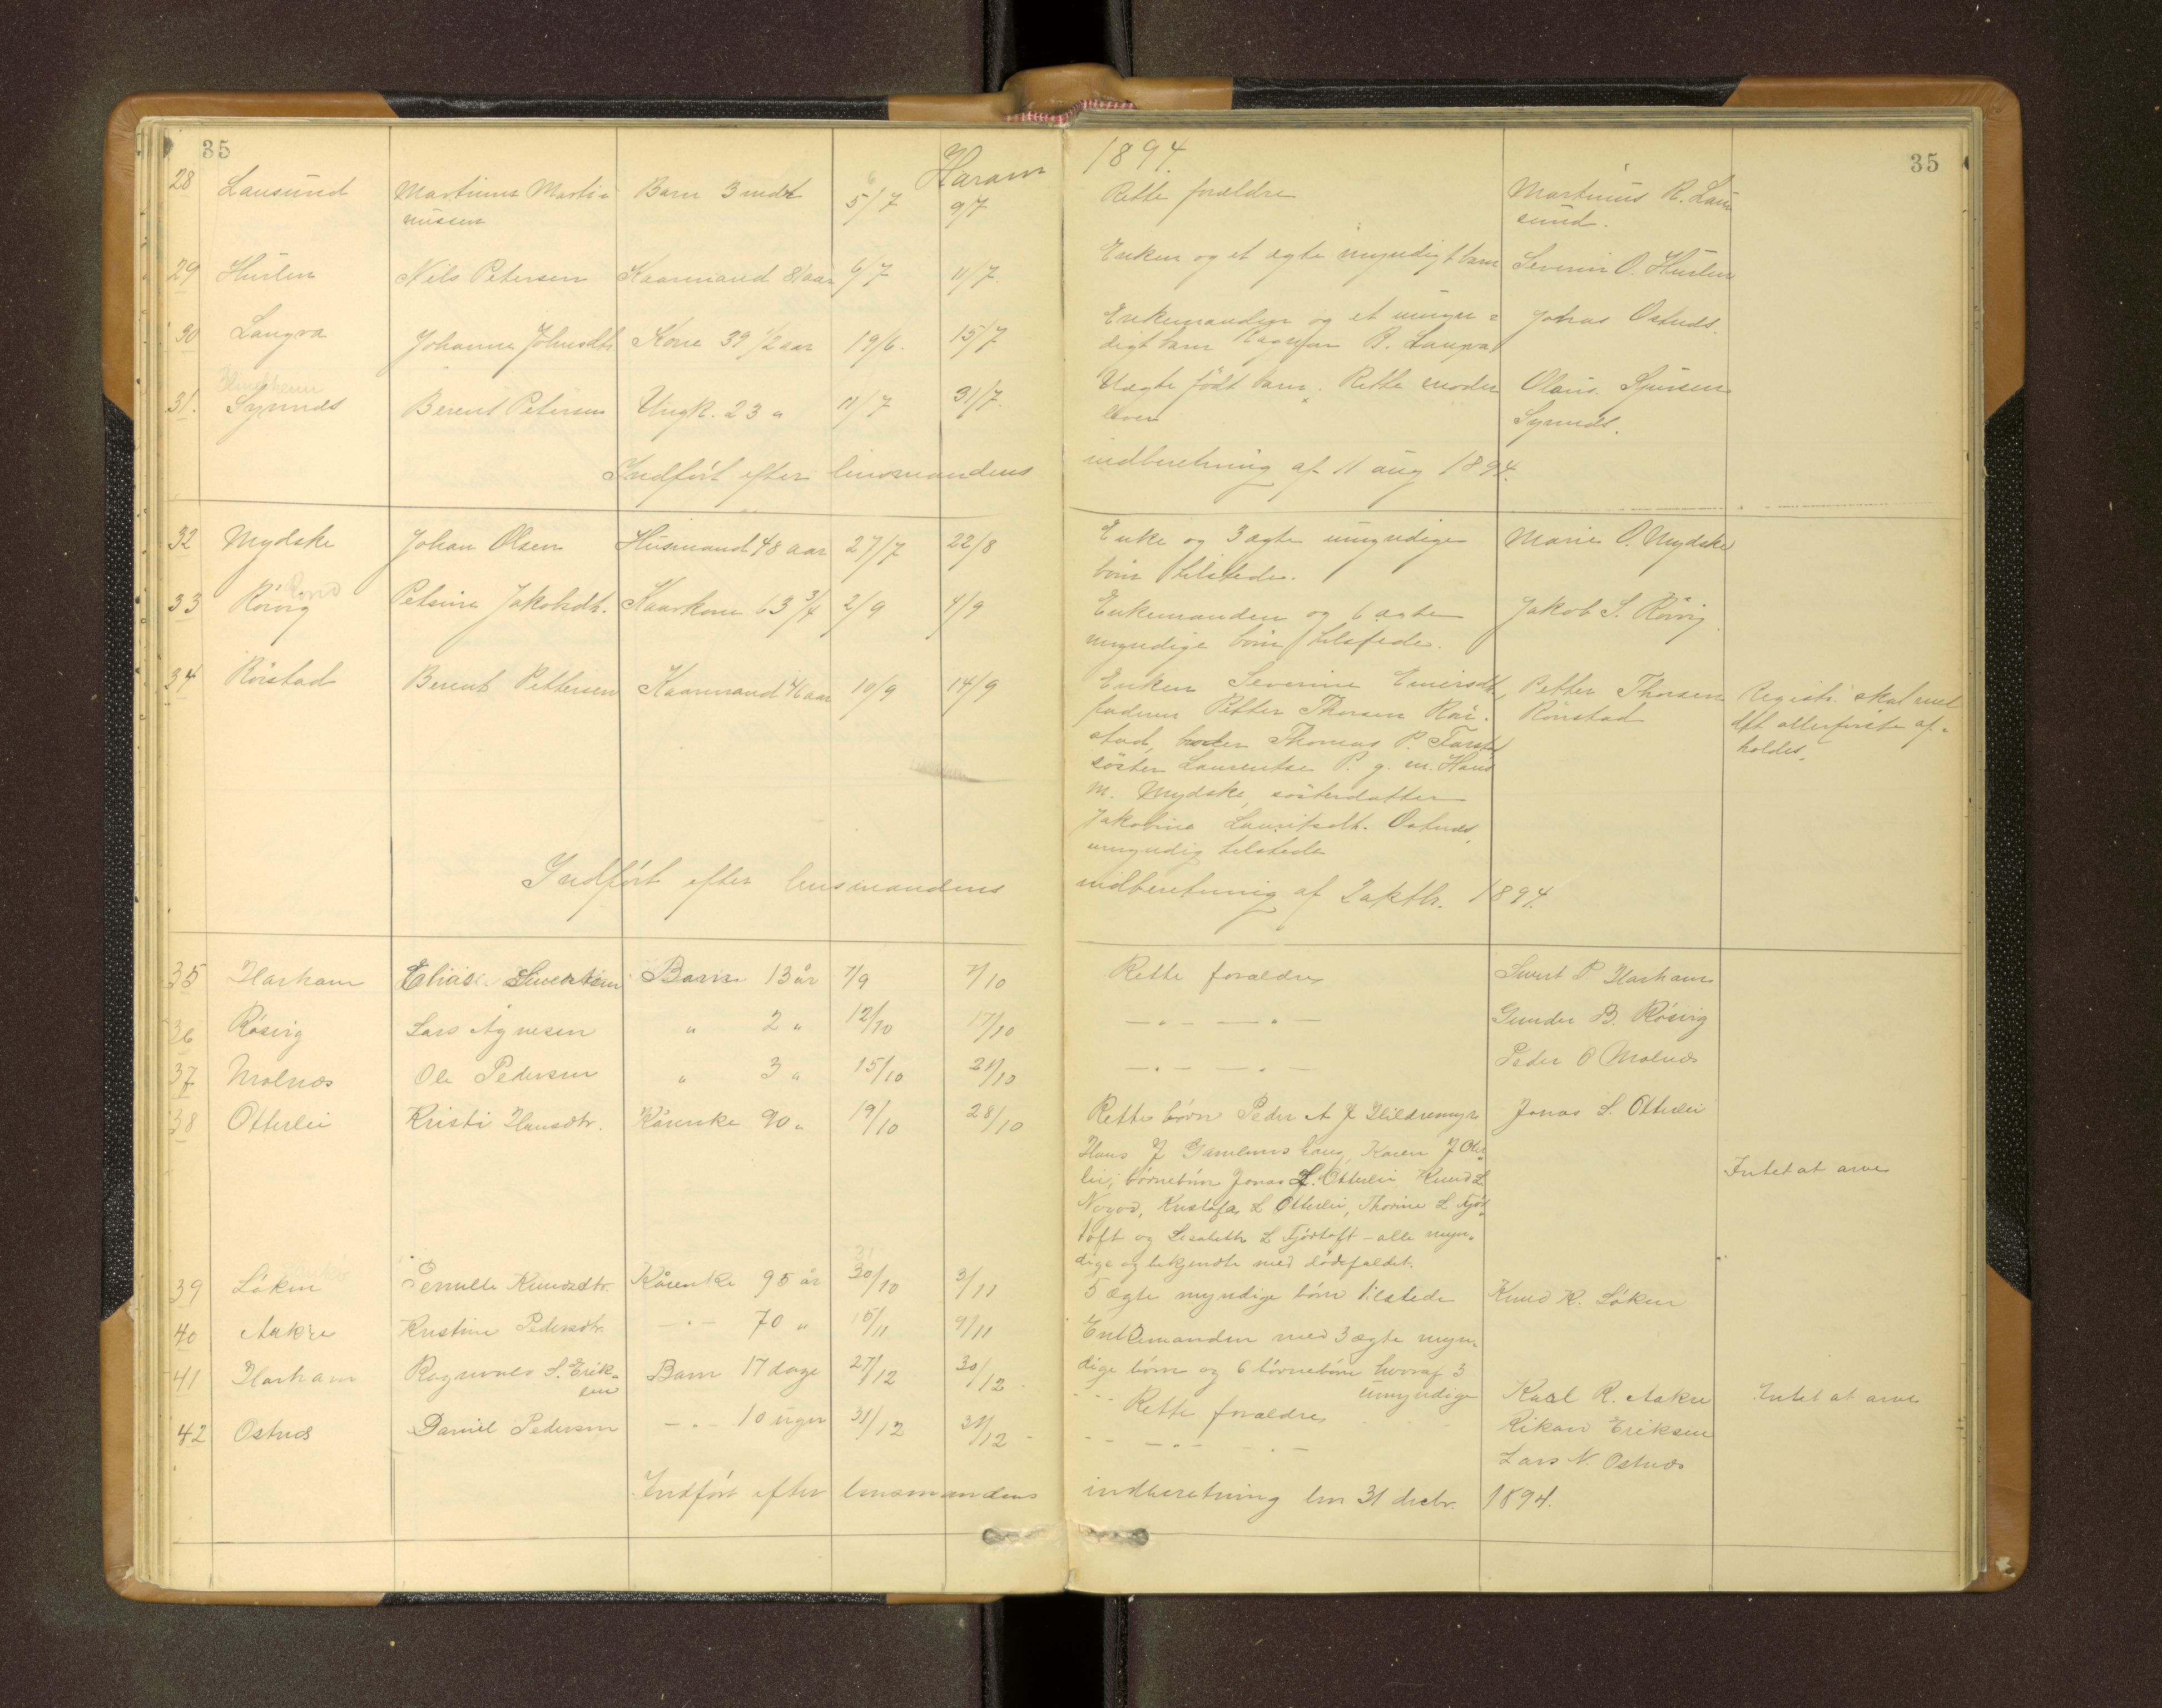 35
Haram
1894.
35
28 Lausund Martinus Marti= Barn 3 mdr 5/7 9/7 Rette forældre Martinus R. Lau
nussen sund.
29 Huslen Nils Petersen Kaarmand 81 aar 6/7 11/7. Enken og et ægte myndigt barn Severin O. Huslen
30 Langva Johanna Johnsdtr Kone 39 1/2 aar 19/6. 15/7 Enkemanden og et umyn= Johas Ostnds.
digt barn R. Langva
31. Synnds Berent Petersen Ungk. 23 " 11/7 31/7. Uægte født barn. Rette moder Olaus Sjursen
lever Synnds.
Indført efter lensmandens indberetning af 11 aug 1894.
32 Mydske Johan Olsen Husmand 48 aar 27/7 22/8 Enke og 3 ægte umyndige Marie O. Mydske
børn tilstede.
33 Rørvig Petsine Jakobsdt. Kaarkone 63 3/4 2/9 4/9 Enkemanden og 6 ægte Jakob S. Rørvig
myndige børn tilstede.
34 Rörstad Berent Pettersen Kaarmand 46 aar 10/9 14/9 Enken Severine Einersdtr, Petter Thorsen Registr. skal
faderen Petter Thorsen Rör- Rörstad allerførste af-
stad, broder Thomas P. Farstad holdes.
söster Laurentse P. g. m. Hans
M. Mydske, sösterdatter
Jakobine Lauritsdt. Ostnds,
umyndig tilstede
Indført efter lensmandens indberetning af 2 aktbr. 1894.
35 Harham Elias Sivertsen Barn 13 år 7/9 7/10 Rette forældre Sivert P Harham
36 Røsvig Lars Agnesen " 2 " 12/10 17/10 — " — — " — Gunder B. Røsvig
37 Molnæs Ole Pedersen " 3 " 15/10 21/10 — " — — " — Peder O Molnæs
38 Otterlei Kristi Hansdtr. Kårenke 90 " 19/10 28/10 Rette børn Peder A J Hildremyr Jonas L. Otterlei
Hans J Gamlemshaug, Karen J Otter
lei; børnebørn Jonas L. Otterlei Knud L Intet at arve
Nogvd, Kristofa L Otterlei, Thorine L Fjør
toft og Lisabeth L Fjørtoft - alle myn-
dige og bekjendte med dødsfaldet.
39 Løken Pernille Knudsdtr. Kårenke 95 år 30/10 3/11 5 ægte myndige børn tilstede Knud K. Løken
40 Aakre Kristine Pedersdtr. — " — 70 " 15/11 9/11 Enkemanden med 3 ægte myn-
dige børn og 6 børnebørn hvoraf 3
umyndige Karl R. Aakre Intet at arve
41 Harham Ragnvald S. Erik- Barn 17 dage 27/12 30/12 Rette forældre Rikard Eriksen
sen
42 Ostnæs Daniel Pedersen — " — 10 uger 31/12 31/12 — " — — " — Lars N. Ostnæs
Indført efter lensmandens indberetning 31 decbr. 1894.